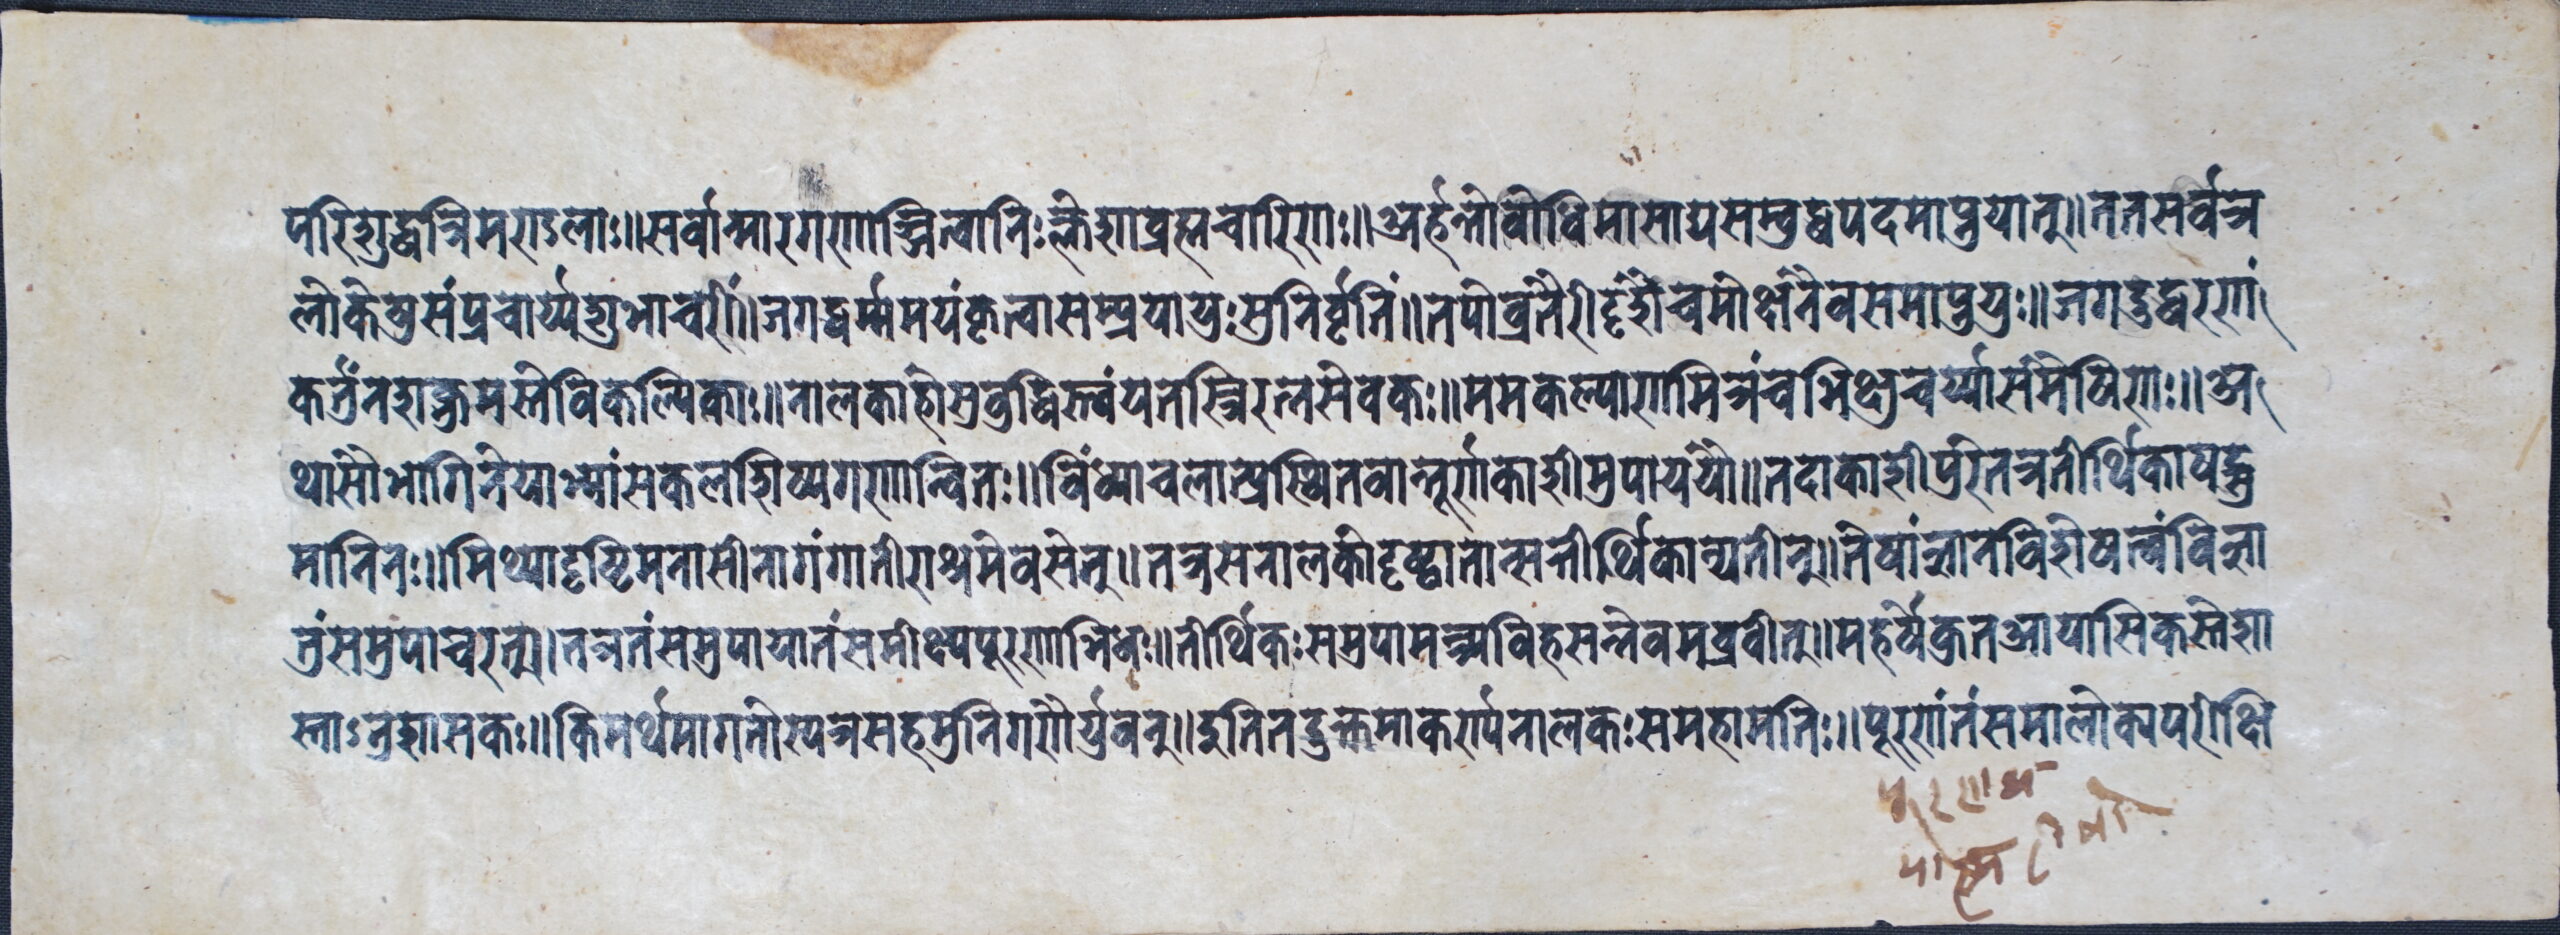 परिशुद्धत्रिमण्डलाः॥सर्वान्मारगणाञ्जित्वानिःक्लेशाब्रह्मचारिणः॥अर्हन्तोबोधिमासाद्यसम्बुद्धपदमाप्नुयात्॥ततसर्वत्र
लोकेषुसंप्रचार्य्यशुभाचरीं॥जगद्धर्म्ममयंकृत्वासम्प्रयायुःसुनिर्वृतिं॥तपोव्रतैरीदृशैश्चमोक्षंनैवसमाप्नुयुः॥जगदुद्धरणं
कर्तुंनशक्नुमस्तेविकल्पिकाः॥नालकोहंसुबुद्धिस्त्वंयतस्त्रिरत्नसेवकः॥ममकल्याणमित्रंचभिक्षुचर्य्यासमेषिणः॥अ
थासौभागिनेयाभ्यांसकलशिष्यगणान्वितः॥विंध्याचलात्प्रस्थितवान्तूर्णंकाशीमुपाययौ॥तदाकाशीपुरेतत्रतीर्थिकाषड्गु
मानिनः॥मिथ्यादृष्टिमनासीनागंगातीराश्रमेवसेत्॥तत्रसनालकोदृष्ट्वातान्सतीर्थिकान्यतीन्॥तेषांज्ञानविशेषत्वंविज्ञा
तुंसमुपाचरत्॥तत्रतंसमुपायातंसमीक्ष्यपूरणाभिधः॥तीर्थिकःसमुपामन्त्र्यविहसन्तेवमब्रवीत्॥महर्षेकुतआयासिकस्तेशा
स्ताऽनुशासकः॥किमर्थमागतोस्यत्रसहमुनिगणैर्युवन्॥इतितदुक्तमाकर्ण्यनालकःसमहामतिः॥पूरणंतंसमालोक्यपरीक्षि